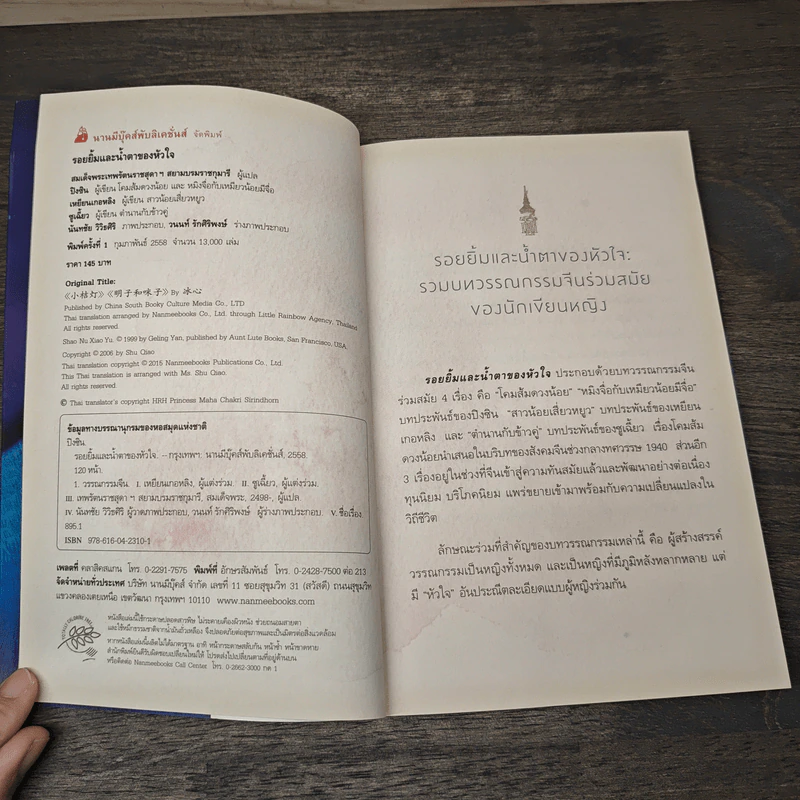 นานมีบุ๊คส์พับลิเคชั่นส์ จัดพิมพ์
รอยยิ้มและน้ำตาของหัวใจ
สมเด็จพระเทพรัตนราชสุดาฯ สยามบรมราชกุมารี ผู้แปล
ปิงซิน ผู้เขียน โคมส้มดวงน้อย และ หมิงจื่อกับเหมียวน้อยมีจื่อ
เหยียนเกอหลิง ผู้เขียน สาวน้อยเสี่ยวหยู
ซูเฉี้ยว ผู้เขียน ตำนานกับข้าวคู่
นันทชัย วิวิชศิริ ภาพประกอบ, วนนท์ รักศิริพงษ์ ร่างภาพประกอบ
พิมพ์ครั้งที่ 1 กุมภาพันธ์ 2558 จำนวน 13,000 เล่ม
ราคา 145 บาท
Original Title:
《小桔灯》《明子和咪子》 By 冰心
Published by China South Booky Culture Media Co., LTD
Thai translation arranged by Nanmeebooks Co., Ltd. through Little Rainbow Agency, Thailand
All rights reserved.
Shao Nu Xiao Yu. © 1999 by Geling Yan, published by Aunt Lute Books, San Francisco, USA.
Copyright © 2006 by Shu Qiao
Thai translation copyright © 2015 Nanmeebooks Publications Co., Ltd.
This Thai translation is arranged with Ms. Shu Qiao.
All rights reserved.
© Thai translator's copyright HRH Princess Maha Chakri Sirindhorn
ข้อมูลทางบรรณานุกรมของหอสมุดแห่งชาติ
ปิงซิน.
รอยยิ้มและน้ำตาของหัวใจ. -- กรุงเทพฯ. นานมีบุ๊คส์พับลิเคชั่นส์, 2558.
120 หน้า.
1. วรรณกรรมจีน. I. เหยียนเกอหลิง, ผู้แต่งร่วม. II. ซูเฉี้ยว, ผู้แต่งร่วม.
III. เทพรัตนราชสุดา ฯ สยามบรมราชกุมารี, สมเด็จพระ, 2498-, ผู้แปล.
IV. นันทชัย วิวิชศิริ ผู้วาดภาพประกอบ, วนนท์ รักศิริพงษ์ ผู้ร่างภาพประกอบ. V. ชื่อเรื่อง
895.1
ISBN 978-616-04-2310-1
เพลตที่ คลาสิคสแกน โทร. 0-2291-7575 พิมพ์ที่ อักษรสัมพันธ์ โทร. 0-2428-7500 ต่อ 213
จัดจำหน่ายทั่วประเทศ บริษัท นานมีบุ๊คส์ จำกัด เลขที่ 11 ซอยสุขุมวิท 31 (สวัสดี) ถนนสุขุมวิท
แขวงคลองเตยเหนือ เขตวัฒนา กรุงเทพฯ 10110 www.nanmeebooks.com
หนังสือเล่มนี้ใช้กระดาษปลอดสารพิษ ไม่ระคายเคืองผิวหนัง ช่วยถนอมสายตา
และใช้หมึกธรรมชาติจากน้ำมันถั่วเหลือง จึงปลอดภัยต่อสุขภาพและเป็นมิตรต่อสิ่งแวดล้อม
หากหนังสือเล่มนี้ผลิตไม่ได้มาตรฐาน อาทิ หน้ากระดาษสลับกัน หน้าซ้ำ หน้าขาดหาย
สำนักพิมพ์ยินดีรับผิดชอบเปลี่ยนใหม่ให้ โปรดส่งไปเปลี่ยนตามที่อยู่ด้านบน
หรือติดต่อ Nanmeebooks Call Center โทร. 0-2662-3000 กด 1
รอยยิ้มและน้ำตาของหัวใจ:
รวมบทวรรณกรรมจีนร่วมสมัย
ของนักเขียนหญิง
รอยยิ้มและน้ำตาของหัวใจ ประกอบด้วยบทวรรณกรรมจีน
ร่วมสมัย 4 เรื่อง คือ "โคมส้มดวงน้อย" "หมิงจื่อกับเหมียวน้อยมีจื่อ"
บทประพันธ์ของปิงซิน "สาวน้อยเสี่ยวหยู" บทประพันธ์ของเหยียน
เกอหลิง และ "ตำนานกับข้าวคู่" บทประพันธ์ของซูเฉี้ยว เรื่องโคมส้ม
ดวงน้อยนำเสนอในบริบทของสังคมจีนช่วงกลางทศวรรษ 1940 ส่วนอีก
3 เรื่องอยู่ในช่วงที่จีนเข้าสู่ความทันสมัยแล้วและพัฒนาอย่างต่อเนื่อง
ทุนนิยม บริโภคนิยม แพร่ขยายเข้ามาพร้อมกับความเปลี่ยนแปลงใน
วิถีชีวิต
ลักษณะร่วมที่สำคัญของบทวรรณกรรมเหล่านี้ คือ ผู้สร้างสรรค์
วรรณกรรมเป็นหญิงทั้งหมด และเป็นหญิงที่มีภูมิหลังหลากหลาย แต่
มี "หัวใจ" อันประณีตละเอียดแบบผู้หญิงร่วมกัน